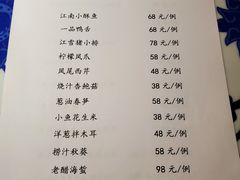 江南小酥鱼 68 元/例
一品鸭舌 68 元/例
江雪糖小排 78 元/例
柠檬凤爪 58 元/例
凤尾西芹 48 元/例
烧汁杏鲍菇 38 元/例
葱油春笋 58 元/例
小鱼花生米 38 元/例
洋葱拌木耳 48 元/例
捞汁秋葵 58 元/例
老醋海蜇 98 元/例